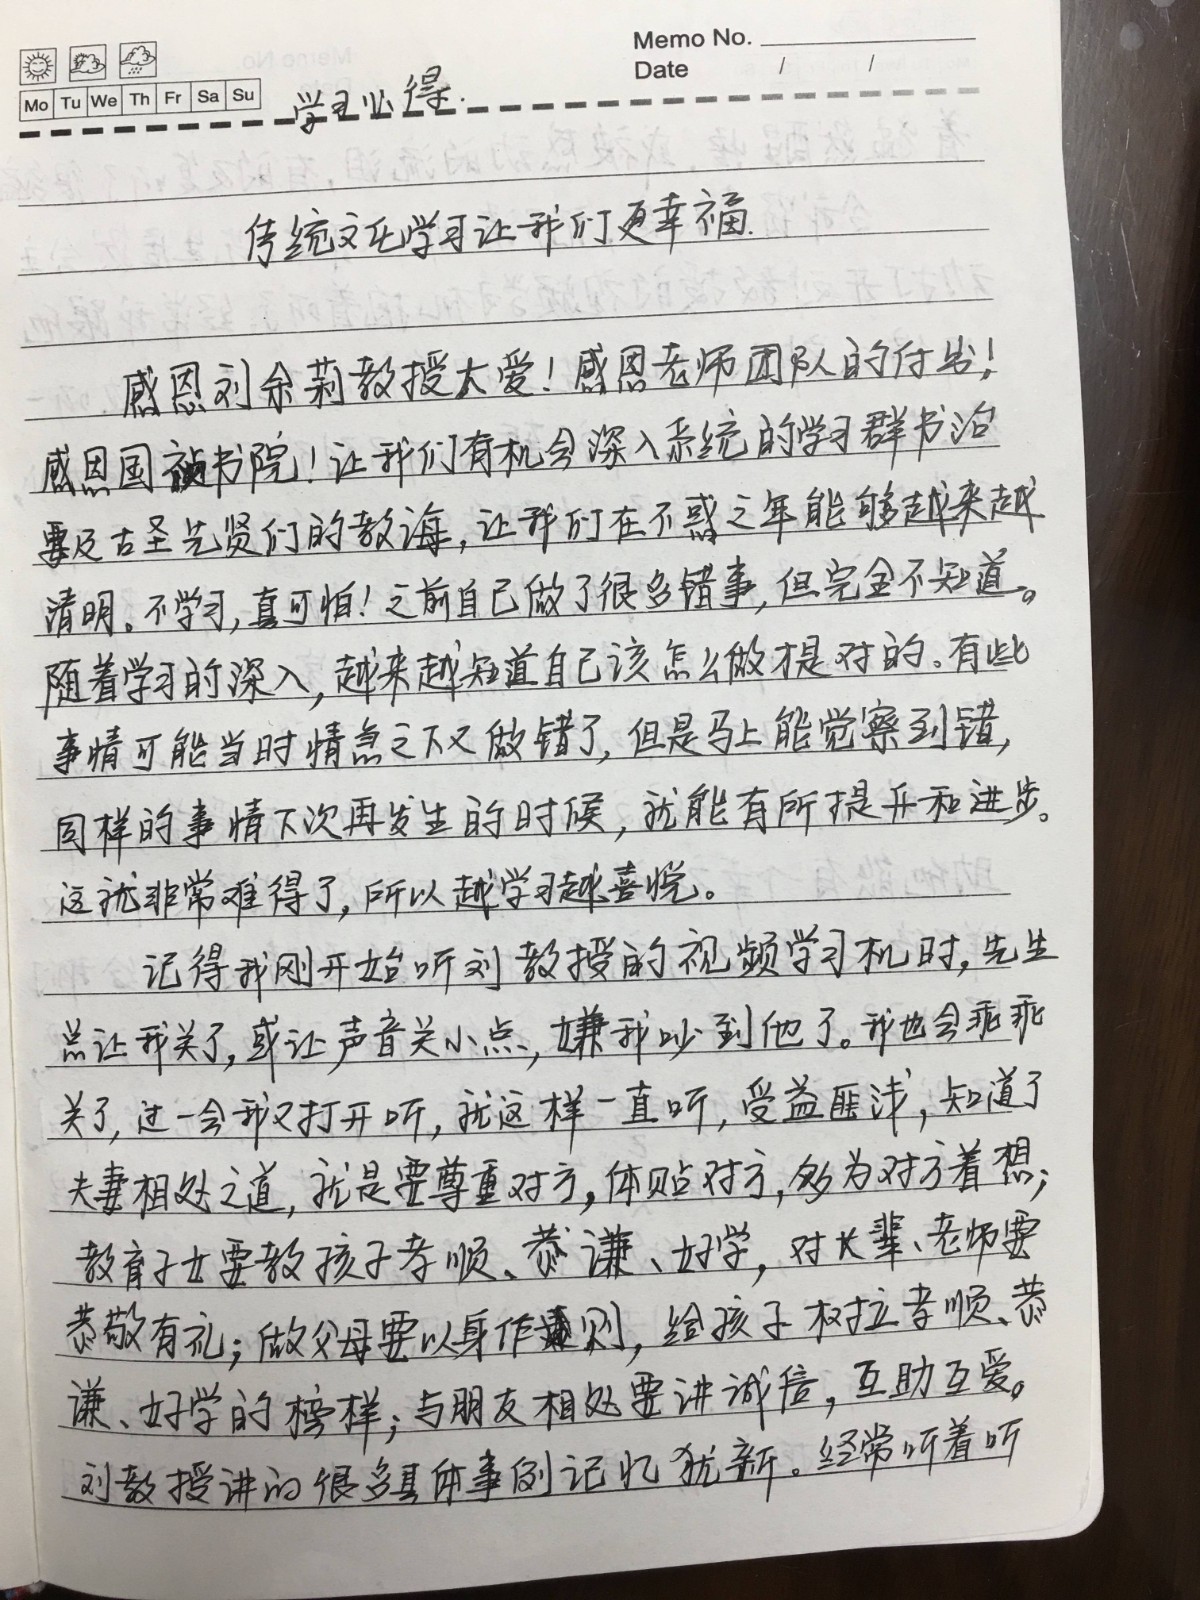 Memo No.
Date / /
Mo Tu We Th Fr Sa Su
学习心得.
传统文化学习让我们更幸福.
感恩刘余莉教授大爱!感恩老师团队的付出!
感恩国祯书院!让我们有机会深入系统的学习群书治
要及古圣先贤们的教诲,让我们在不惑之年能够越来越
清明。不学习,真可怕!之前自己做了很多错事,但完全不知道。
随着学习的深入,越来越知道自己该怎么做才是对的。有些
事情可能当时情急之下又做错了,但是马上能觉察到错,
同样的事情下次再发生的时候,就能有所提升和进步。
这就非常难得了,所以越学习越喜悦。
记得我刚开始听刘教授的视频学习机时,先生
总让我关了,或让声音关小点,嫌我吵到他了。我也会乖乖
关了,过一会我又打开听,就这样一直听,受益匪浅,知道了
夫妻相处之道,就是要尊重对方,体贴对方,多为对方着想;
教育子女要教孩子孝顺、恭谦、好学,对长辈、老师要
恭敬有礼;做父母要以身作则,给孩子树立孝顺、恭
谦、好学的榜样;与朋友相处要讲诚信,互助互爱。
刘教授讲的很多具体事例记忆犹新。经常听着听